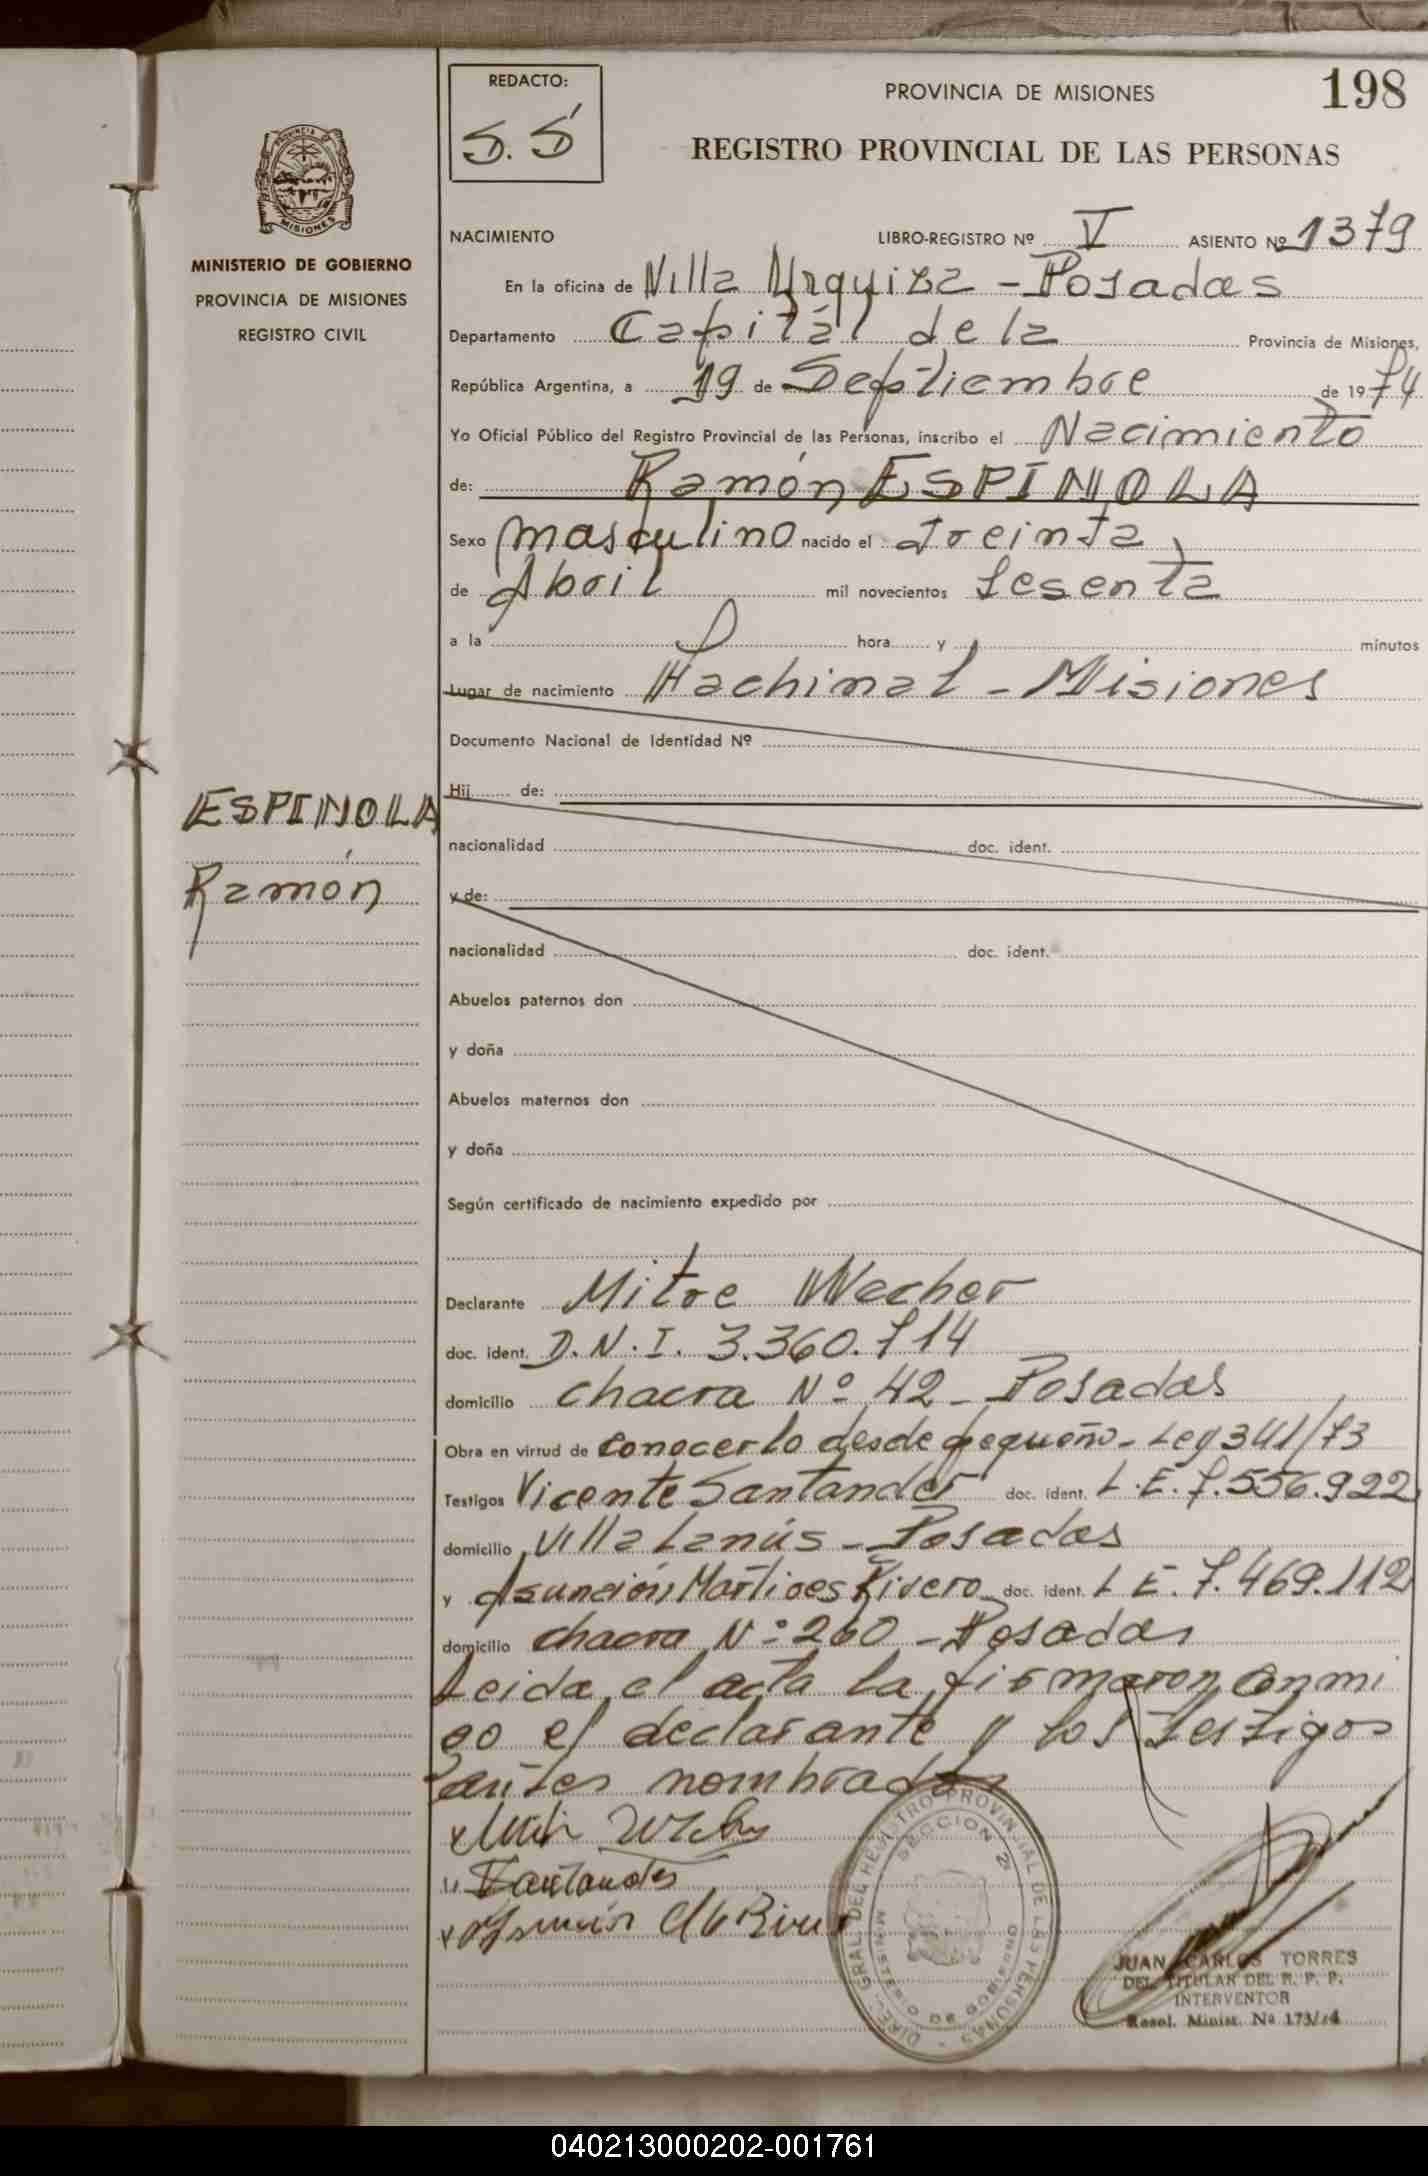 REDACTO:
S. S
PROVINCIA DE MISIONES
198
REGISTRO PROVINCIAL DE LAS PERSONAS
PROVINCIA DE
MISIONES
MINISTERIO DE GOBIERNO
PROVINCIA DE MISIONES
REGISTRO CIVIL
NACIMIENTO LIBRO-REGISTRO Nº V ASIENTO Nº 1379
En la oficina de Villa Urquiza - Posadas
Departamento Capital de la Provincia de Misiones,
República Argentina, a 19 de Septiembre de 1974
Yo Oficial Público del Registro Provincial de las Personas, inscribo el Nacimiento
de: Ramón ESPÍNOLA
Sexo masculino nacido el treinta
de Abril mil novecientos sesenta
a la hora y minutos
Lugar de nacimiento Hachinal - Misiones
Documento Nacional de Identidad Nº
Hij de:
ESPINOLA
Ramón
nacionalidad doc. ident.
y de:
nacionalidad doc. ident.
Abuelos paternos don
y doña
Abuelos maternos don
y doña
Según certificado de nacimiento expedido por
Declarante Mitre Wecher
doc. ident. D.N.I. 3.360.714
domicilio chacra Nº 42 - Posadas
Obra en virtud de conocerlo desde pequeño - Ley 341/73
Testigos Vicente Santander doc. ident. L.E. 7.556.922
domicilio Villa Lanús - Posadas
y Asunción Martires Rivero doc. ident. L E. 7.469.112
domicilio chacra Nº 260 - Posadas
Leida el acta la firmaron conmi
go el declarante y los testigos
antes nombrados
Santander
DIREC. GRAL. DEL REGISTRO PROVINCIAL DE LAS PERSONAS
SECCION 2
MINISTERIO DE GOBIERNO
JUAN CARLOS TORRES
DEL. TITULAR DEL R. P. P.
INTERVENTOR
Resol. Minist. Nº 173/74
040213000202-001761